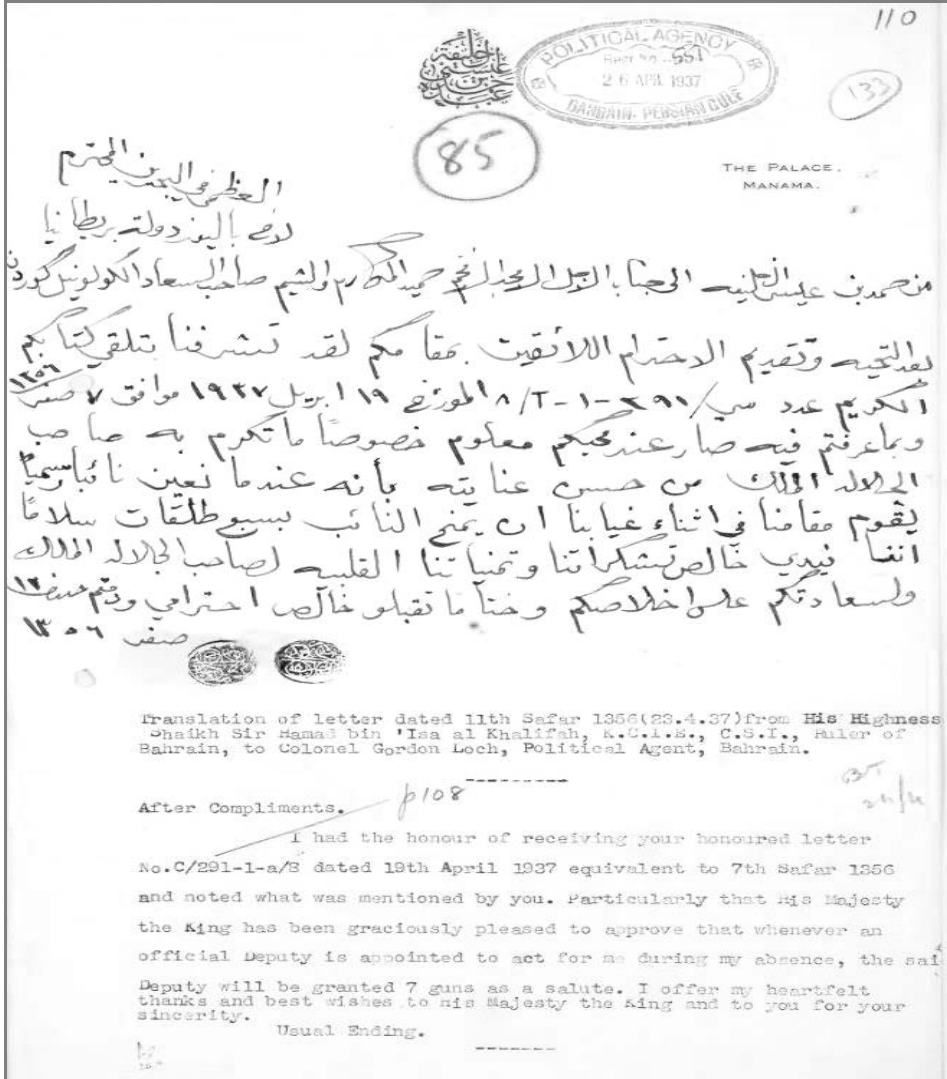 110
POLITICAL AGENCY
Regr No. 551
26 APR 1937
BAHRAIN. PERSIAN GULF
133
85
THE PALACE.
MANAMA.
العظمى في البحرين المحترم
باليوز دولة بريطانيا
من حمد بن عيسى الخليفه الى جناب الاجل الامجد الافخم حميد المكارم والشيم صاحب السعادة الكولونيل گوردن
بعد التحيه وتقديم الاحترام اللائقين بمقامكم لقد تشرفنا بتلقي كتابكم
الكريم عدد سي/٢٩١-١-٨/٢ المؤرخ ١٩ ابريل ١٩٣٧ موافق ٧ صفر ١٣٥٦
وبما عرفتم فيه صار عند محبكم معلوم خصوصًا ما تكرم به صاحب
الجلالة الملك من حسن عنايته بأنه عندما نعين نائبا رسميًا
يقوم مقامنا في اثناء غيابنا ان يمنح النائب بسبع طلقات سلامًا
اننا نبدي خالص تشكراتنا وتمنياتنا القلبيه لصاحب الجلالة الملك
ولسعادتكم على اخلاصكم وختاما تقبلو خالص احترامي ودمتم
صفر ١٣٥٦
Translation of letter dated 11th Safar 1356(23.4.37)from His Highness
Shaikh Sir Hamad bin 'Isa al Khalifah, K.C.I.E., C.S.I., Ruler of
Bahrain, to Colonel Gordon Loch, Political Agent, Bahrain.
After Compliments.
p108
I had the honour of receiving your honoured letter
No.C/291-1-a/8 dated 19th April 1937 equivalent to 7th Safar 1356
and noted what was mentioned by you. Particularly that His Majesty
the King has been graciously pleased to approve that whenever an
official Deputy is appointed to act for me during my absence, the sai
Deputy will be granted 7 guns as a salute. I offer my heartfelt
thanks and best wishes to His Majesty the King and to you for your
sincerity.
Usual Ending.